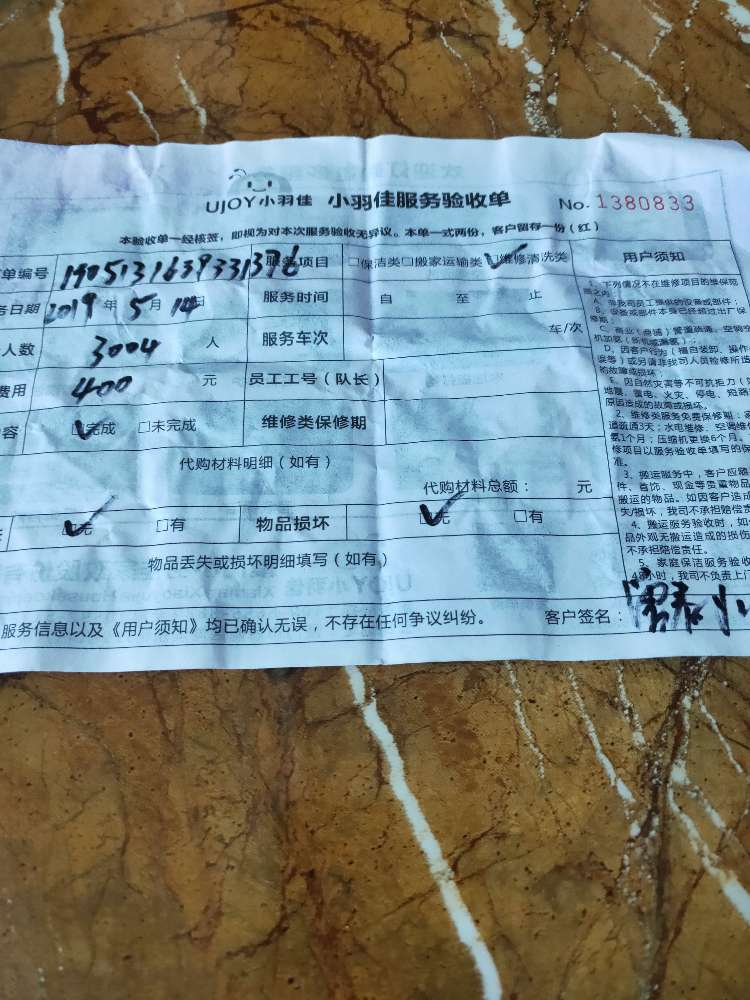 UJOY小羽佳 小羽佳服务验收单 No. 1380833
本验收单一经核签，即视为对本次服务验收无异议。本单一式两份，客户留存一份（红）
单编号 1905131639331376 服务项目 □保洁类□搬家运输类☑维修清洗类 用户须知
务日期 2019年5月14日 服务时间 自 至 止
人数 3004 人 服务车次 车/次
费用 400 元 员工工号（队长）
容 ☑完成 □未完成 维修类保修期
代购材料明细（如有）
代购材料总额： 元
☑无 □有 物品损坏 ☑无 □有
物品丢失或损坏明细填写（如有）
服务信息以及《用户须知》均已确认无误，不存在任何争议纠纷。 客户签名：
1、下列情况不在维修项目的维保范
A、非我司员工提供的设备或部件；
B、设备或部件本身已经超过出厂保
修期；
D、因客户行为（擅自装卸、操作
误等）或另请非我司人员检修所造
的故障或损坏；
E、因自然灾害等不可抗拒力（
地震、雷电、火灾、停电、短路
原因造成的故障或损坏。
2、维修类服务免费保修期：
道疏通3天；水电维修、空调维
氟1个月；压缩机更换6个月。
修项目以服务验收单填写的保
准。
3、搬运服务中，客户应
件、首饰、现金等贵重物品
搬运的物品。如因客户造成
失/损坏，我司不承担赔偿责
4、搬运服务验收时，如
品外观无搬运造成的损伤
不承担赔偿责任。
5、家庭保洁服务验收
48小时，我司不负责上门